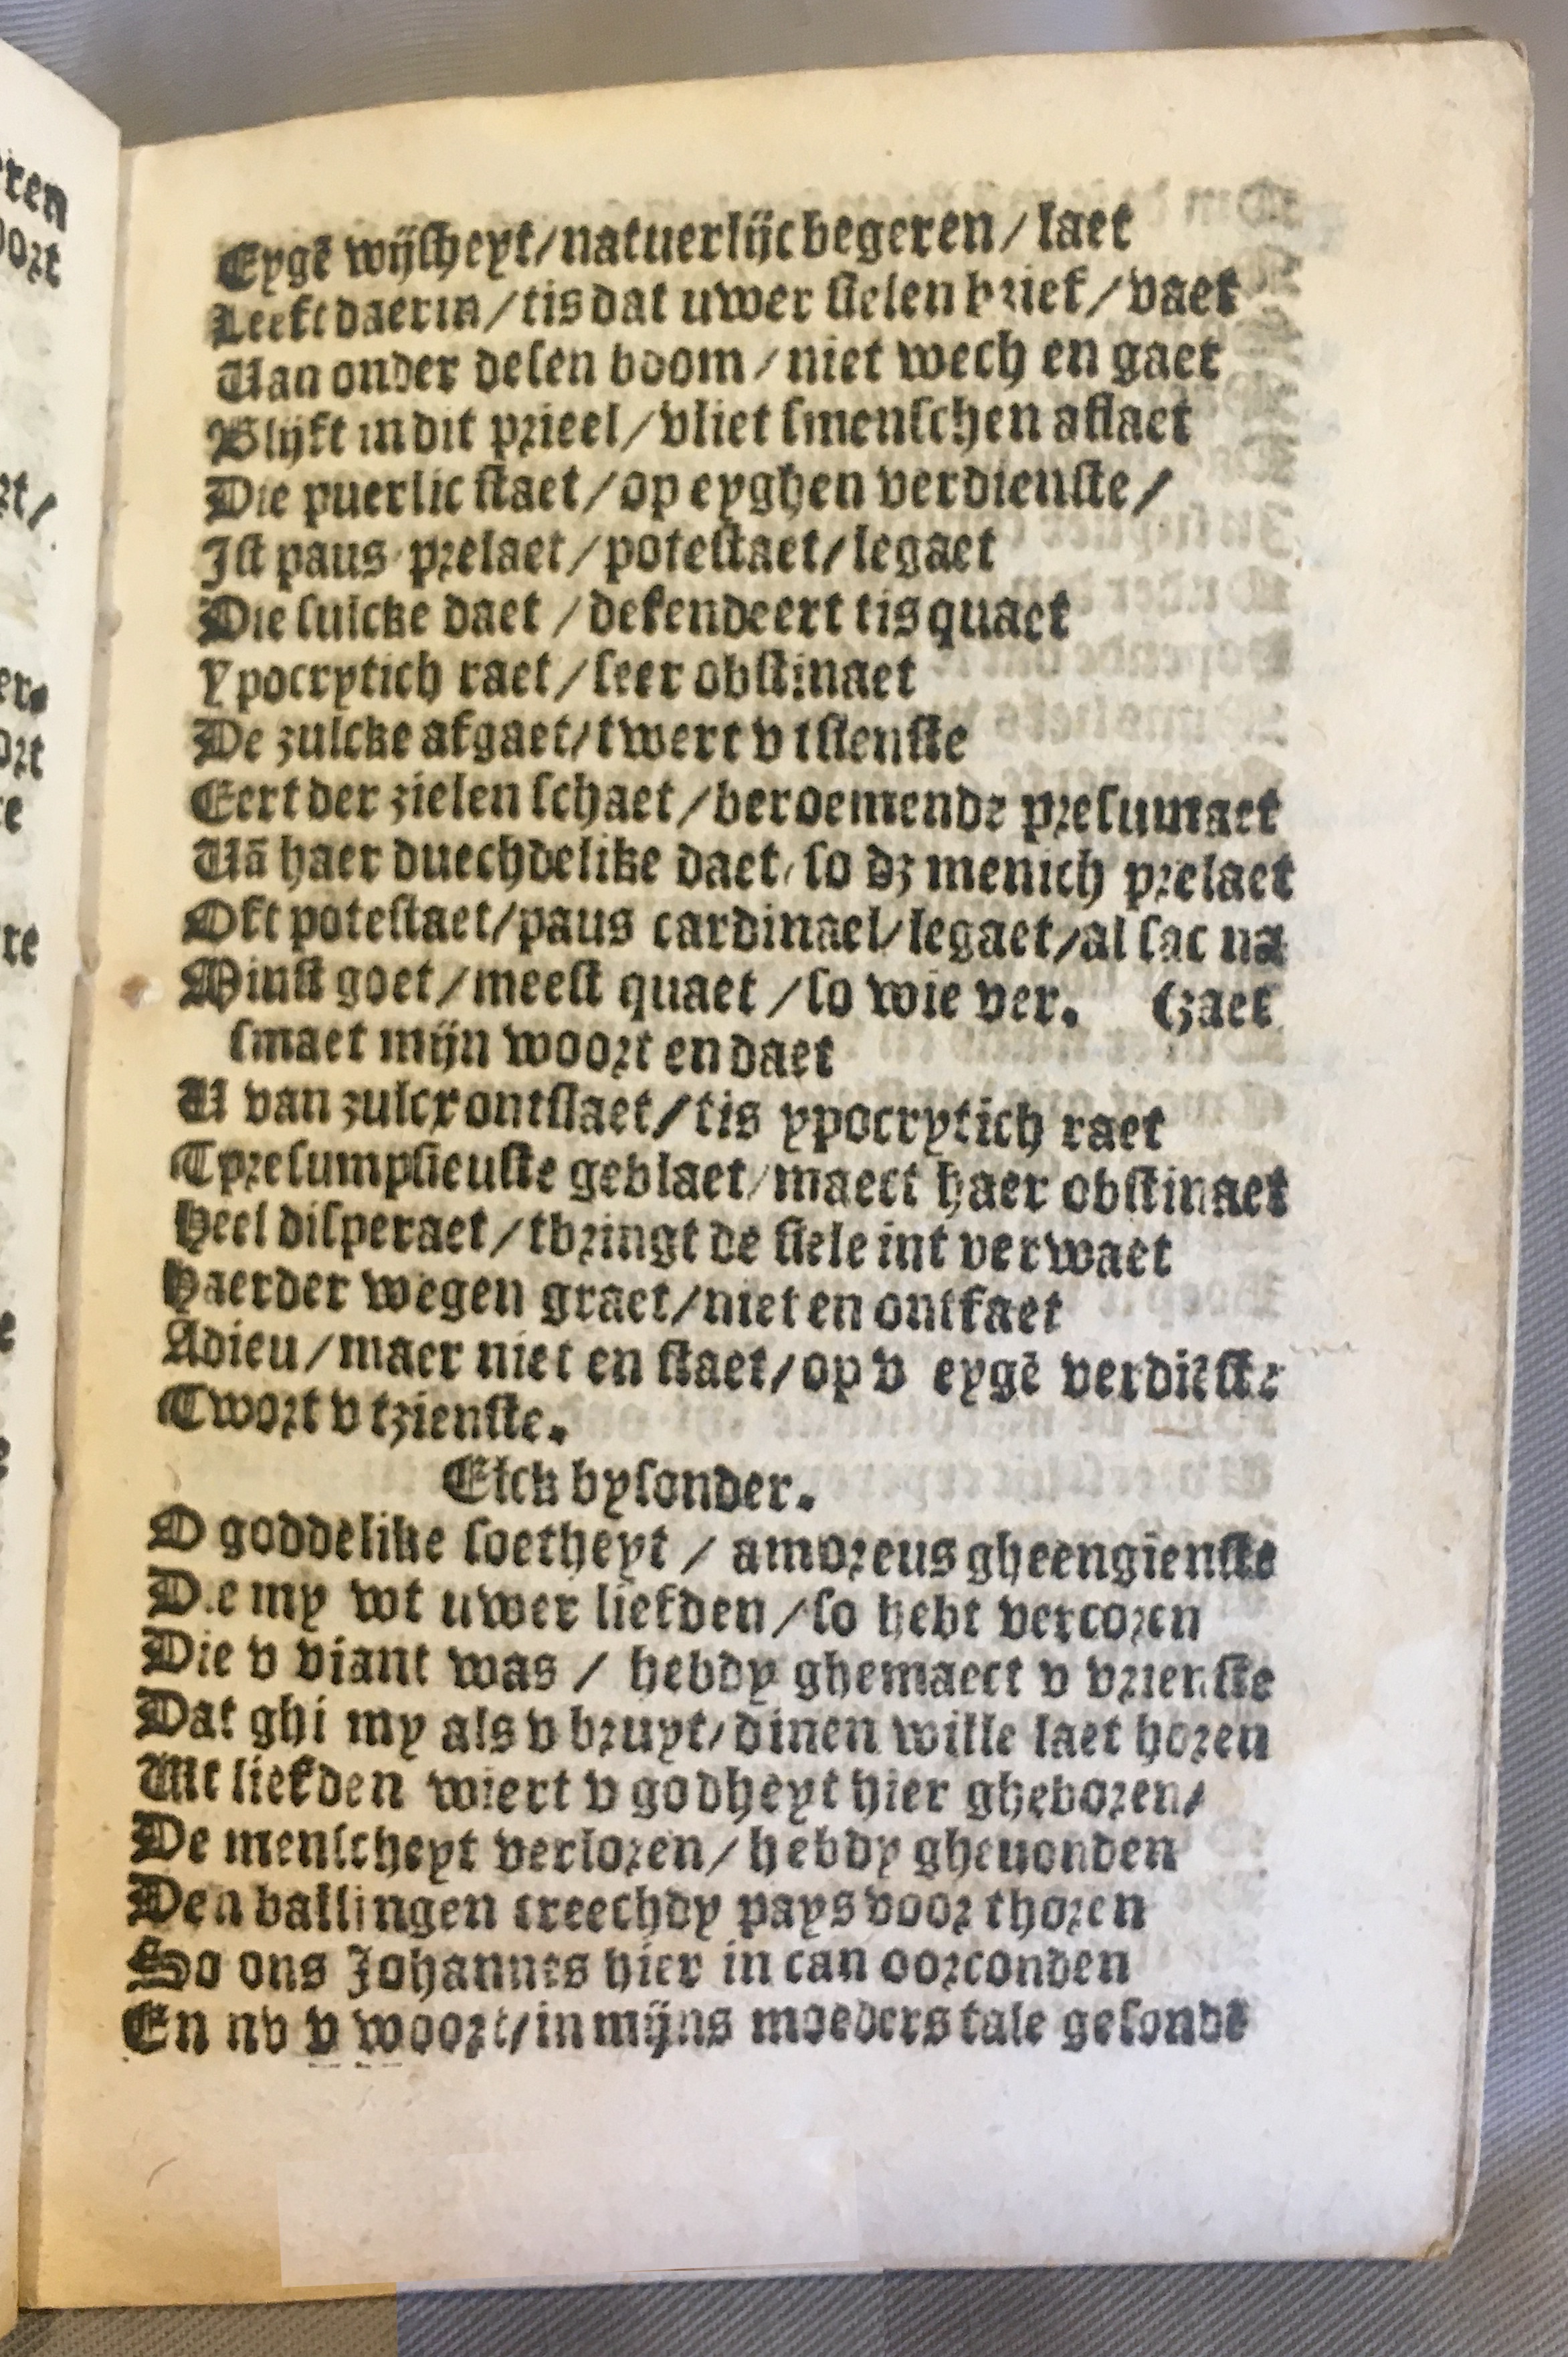 eren
oort
rt/
er.
ort
te
re
Eygē wijſheyt/natuerlijc begeren/laet
Leeft daerin/tis dat uwer ſielen brief/vaet
Uan onder deſen boom/niet wech en gaet
Blijft in dit prieel/vliet ſmenſchen aflaet
Die puerlic ſtaet/op eyghen verdienſte/
Iſt paus prelaet/poteſtaet/legaet
Die ſulcke daet/defendeert tis quaet
Ypocrytich raet/ſeer obſtinaet
De zulcke afgaet/twert v tſienſte
Eert der zielen ſchaet/beroemende preſumaet
Uā haer duechdelike daet/ſo dz menich prelaet
Oft poteſtaet/paus cardinael/legaet/al ſac na
Minſt goet/meeſt quaet/ſo wie ver. (zaet
ſmaet mijn woort en daet
U van zulcx ontſlaet/tis ypocrytich raet
Tpreſumpſieuſte geblaet/maect haer obſtinaet
Heel diſperaet/tbringt de ſiele int verwaet
Haerder wegen graet/niet en ontfaet
Adieu/maer niet en ſtaet/op v eygē verdiēſte
Twort v tzienſte.
Elck byſonder.
O goddelike ſoetheyt/amoreus gheengienſte
Die my wt uwer liefden/ſo hebt vercoren
Die v viant was/hebdy ghemaect v vrienſte
Dat ghi my als v bruyt/dinen wille laet horen
Wt liefden wiert v godheyt hier gheboren/
De menſcheyt verloren/hebdy gheuonden
Den ballingen creechdy pays voor thoren
So ons Johannes hier in can oorconden
En nv v woort/in mijns moeders tale geſondē